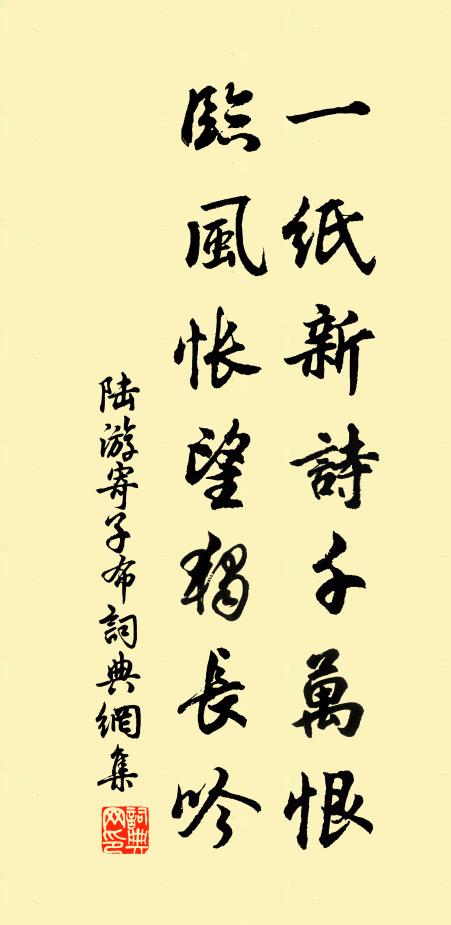 一紙新詩千萬恨
臨風悵望獨長吟
陸游寄子布詞典網集
詞典网印